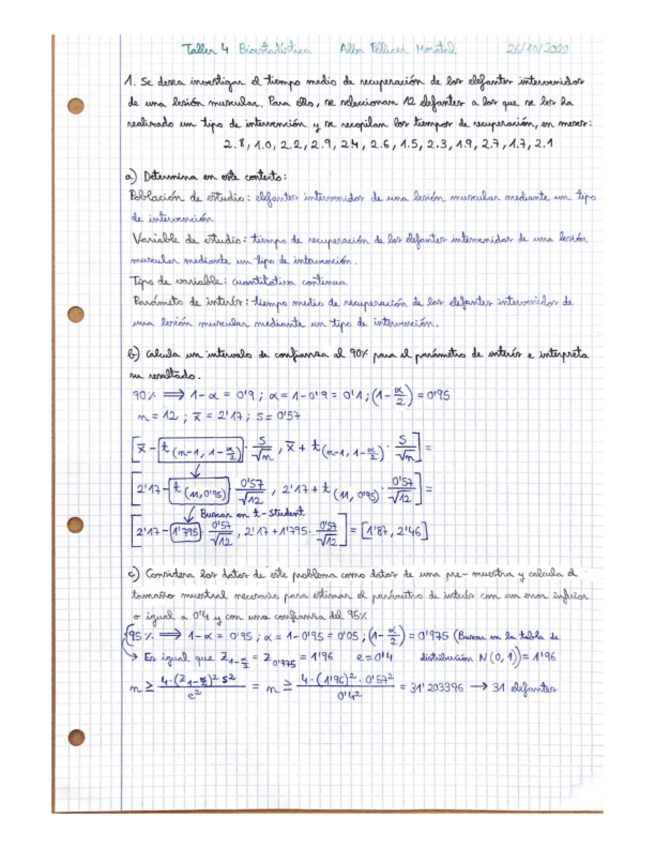 Taller 4 Bioestadística Alba Pellicer Monstal 26/10/2020
1. Se desea investigar el tiempo medio de recuperación de los elefantes intervenidos
de una lesión muscular. Para ello, se seleccionan 12 elefantes a los que se les ha
realizado un tipo de intervención y se recopilan los tiempos de recuperación, en meses:
2.8, 1.0, 2.2, 2.9, 2.4, 2.6, 1.5, 2.3, 1.9, 2.7, 1.7, 2.1
a) Determina en este contexto:
Población de estudio: elefantes intervenidos de una lesión muscular mediante un tipo
de intervención
Variable de estudio: tiempo de recuperación de los elefantes intervenidos de una lesión
muscular mediante un tipo de intervención.
Tipo de variable: cuantitativa continua
Parámeto de interés: tiempo medio de recuperación de los elefantes intervenidos de
una lesión muscular mediante un tipo de intervención.
b) Calcula un intervalo de confianza al 90% para el parámetro de interés e interpreta
su resultado.
90% ⟹ 1-α = 0'9 ; α = 1-0'9 = 0'1 ; (1-α/2) = 0'95
n = 12 ; x̄ = 2'17 ; s = 0'57
[x̄ - t(n-1, 1-α/2) · s/√n , x̄ + t(n-1, 1-α/2) · s/√n] =
[2'17 - t(11, 0'95) · 0'57/√12 , 2'17 + t(11, 0'95) · 0'57/√12] =
Buscar en t-student
[2'17 - 1'795 · 0'57/√12 , 2'17 + 1'795 · 0'57/√12] = [1'87, 2'46]
c) Considera los datos de este problema como datos de una pre-muestra y calcula el
tamaño muestral necesario para estimar el parámetro de interés con un error inferior
o igual a 0'4 y con una confianza del 95%
95% ⟹ 1-α = 0'95 ; α = 1-0'95 = 0'05 ; (1-α/2) = 0'975 (Buscar en la tabla de
→ Es igual que Z1-α/2 = Z0'975 = 1'96 e = 0'4 distribución N(0,1)) = 1'96
n ≥ 4·(Z1-α/2)² s²/e² = n ≥ 4·(1'96)² · 0'57²/0'4² = 31'203396 → 31 elefantes